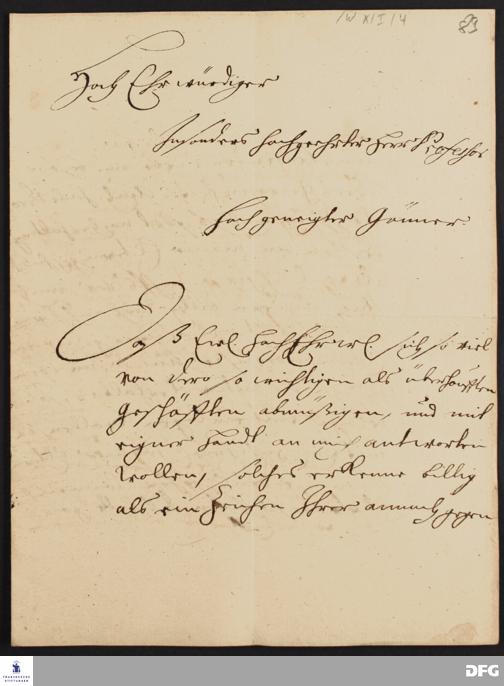 /W XI/I/4
83
Hoch Ehrwürdiger
Insonders hochgeehrter Herr Professor
hochgeneigter Gönner.
Daß Ewl. HochEhrwl. sich so viel
von dero so wichtigen als überhäufften
geschäfften abmüßigen, und mit
eigner handt an mich antworten
wollen, solches erkenne billig
als ein zeichen Ihrer annoch gegen
FRANCKESCHE
STIFTUNGEN
DFG